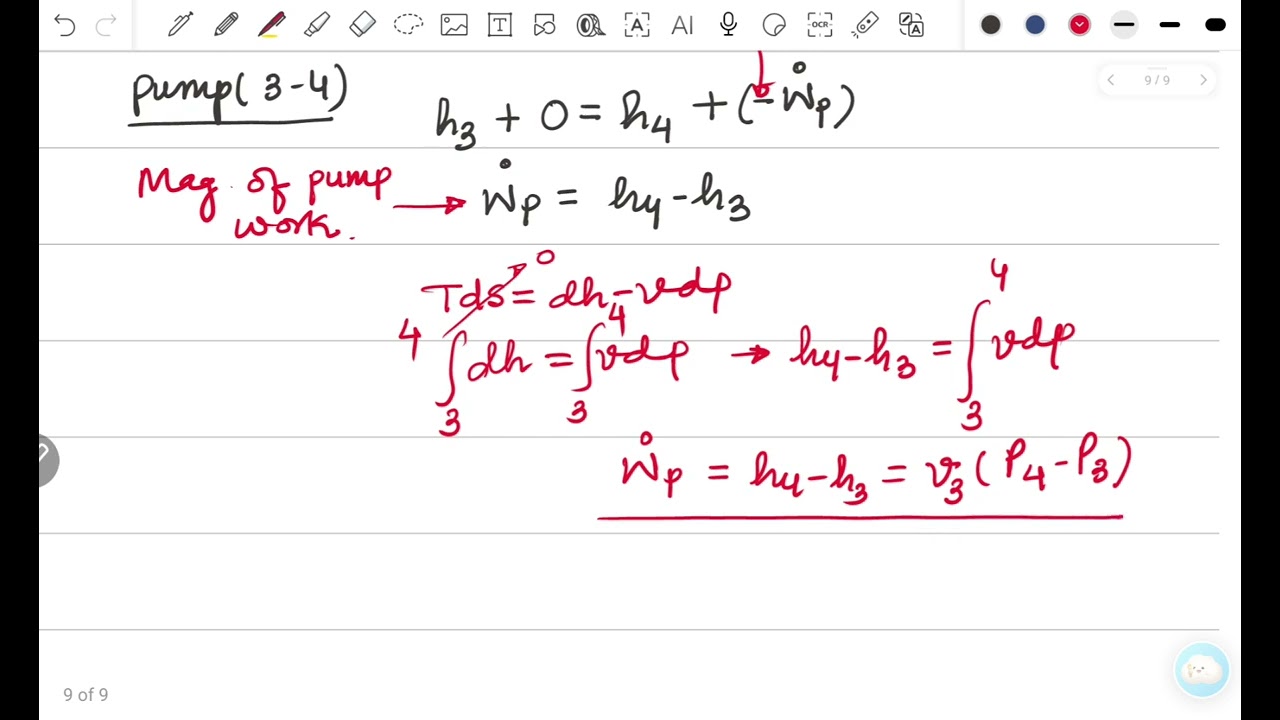 T A AI OCR A
9/9
Pump( 3-4) h₃ + 0 = h₄ + (-Ẇp)
Mag. of pump work. → Ẇp = h4 - h₃
Tds = dh - vdp 0
∫₃⁴ dh = ∫₃⁴ vdp → h4 - h₃ = ∫₃⁴ vdp
Ẇp = h4 - h₃ = v₃ ( P₄ - P₃)
9 of 9